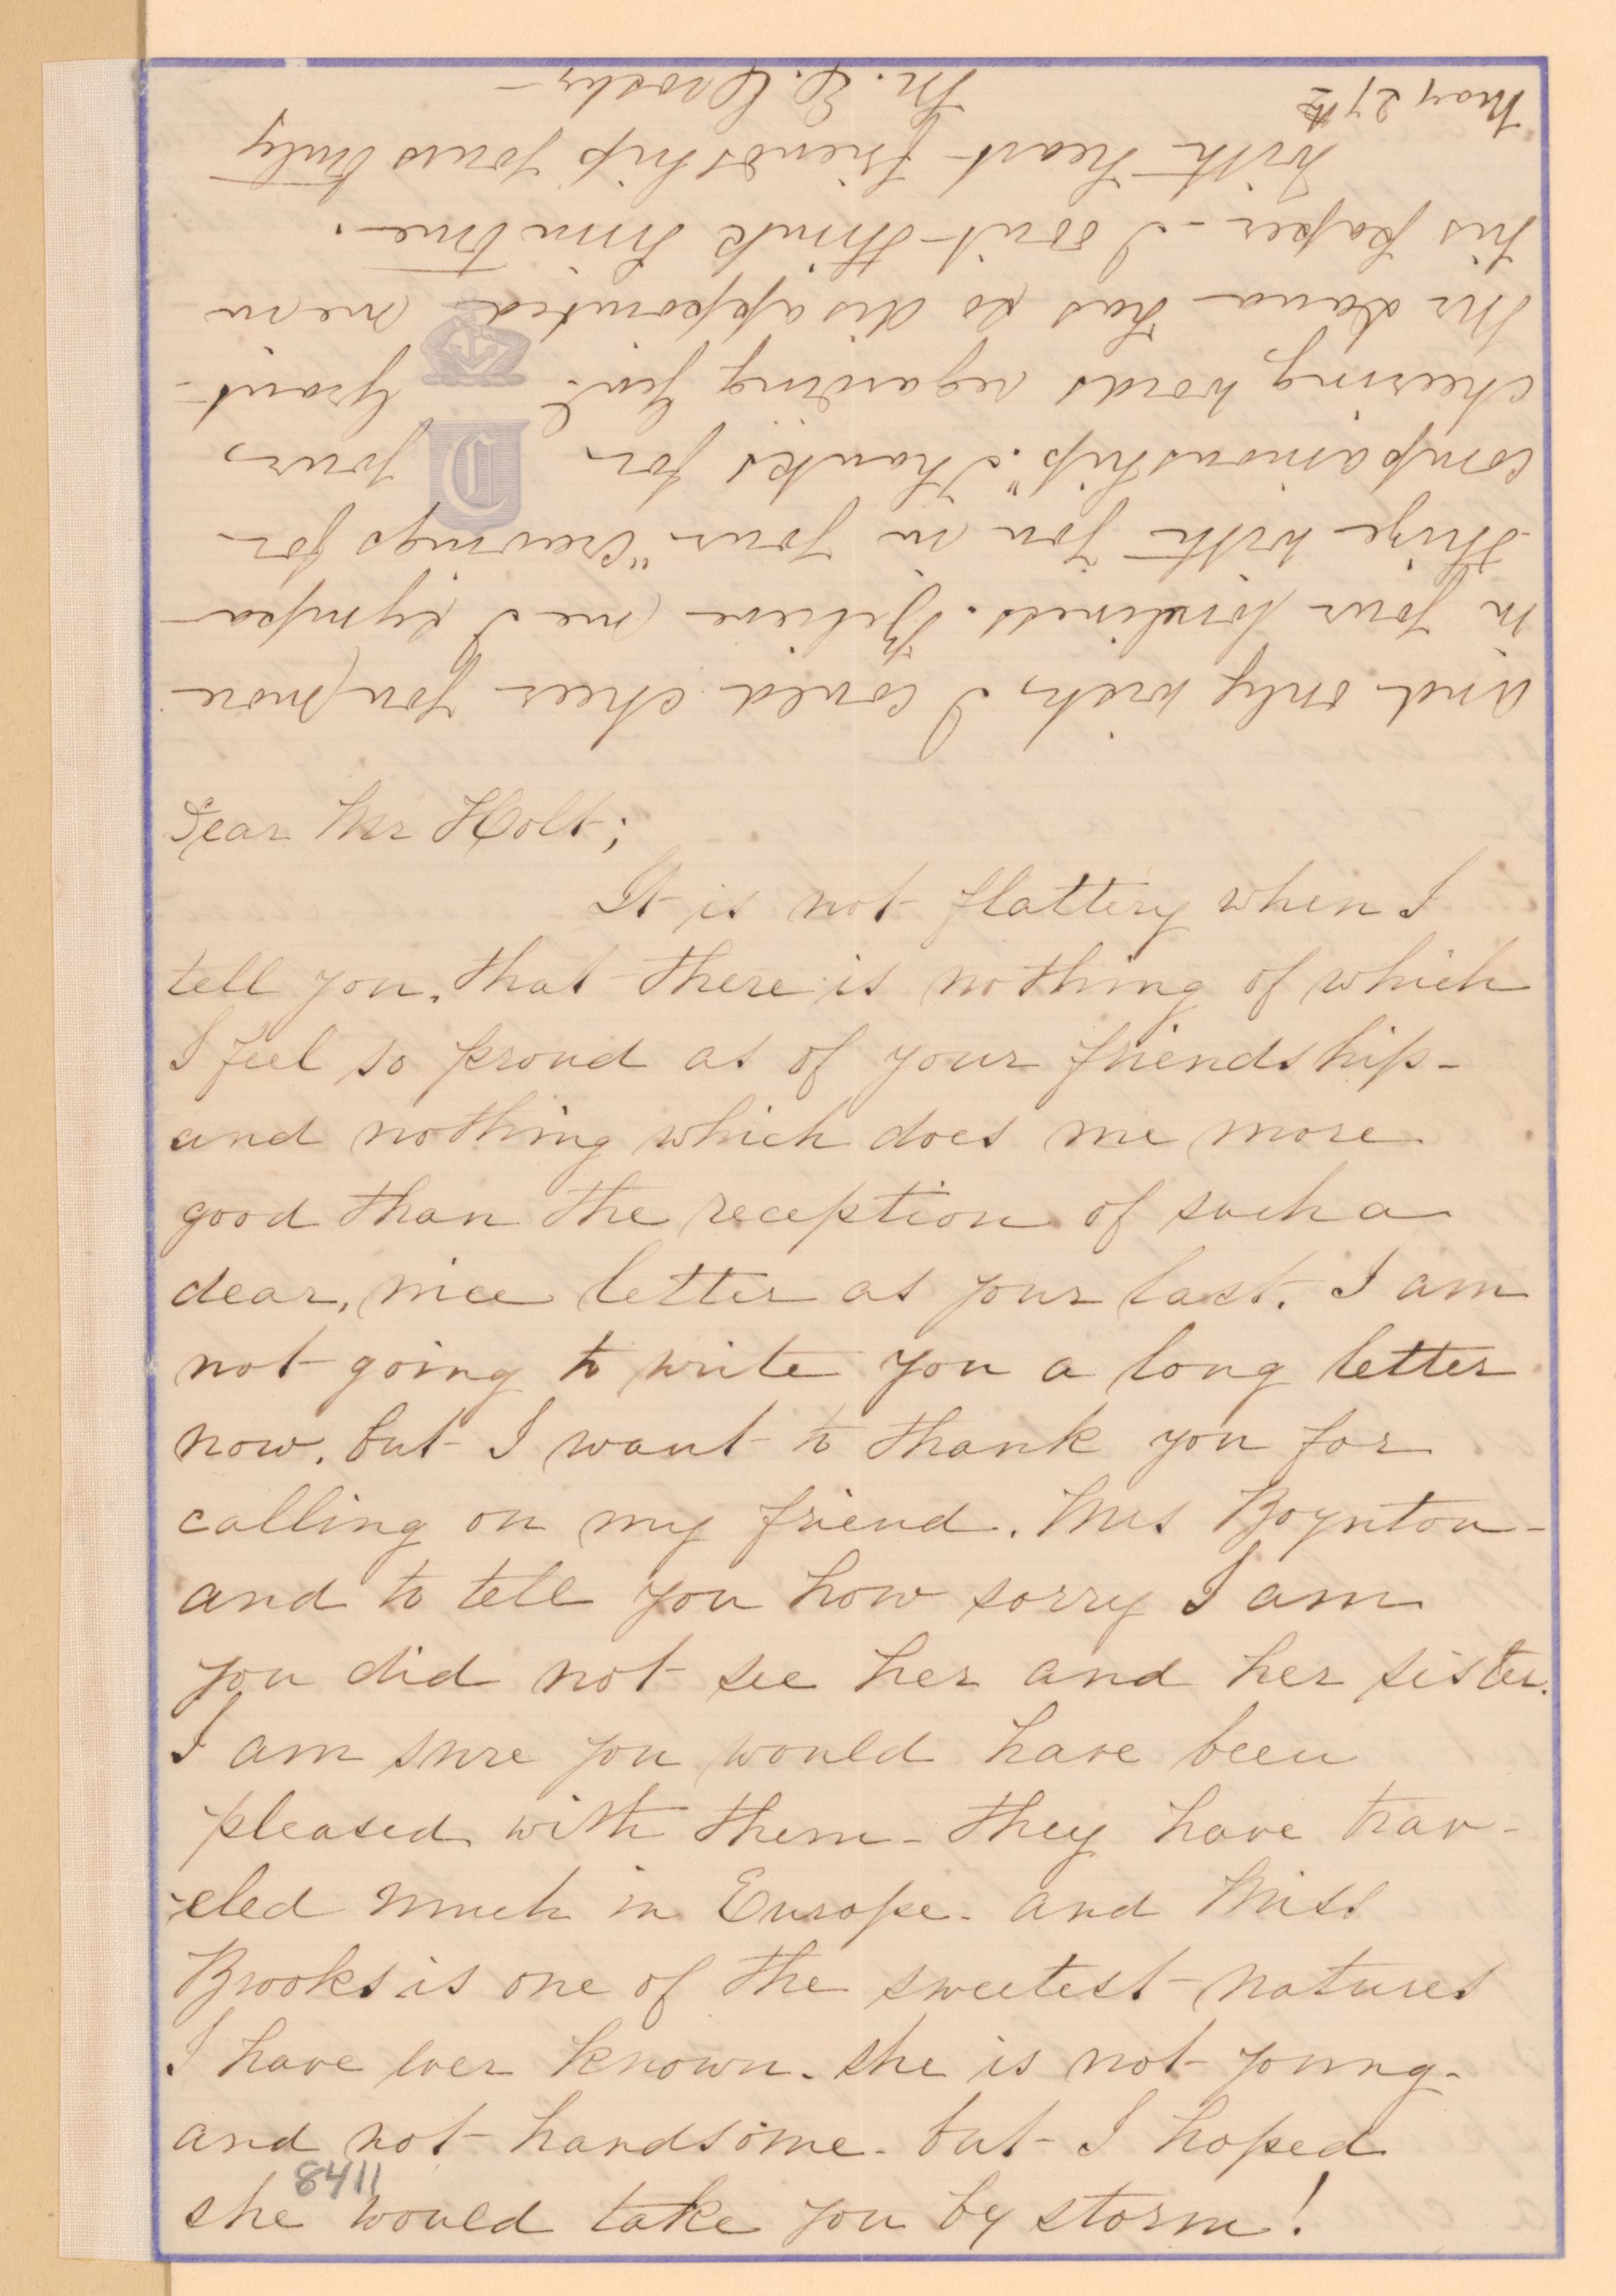 Dear Mr Holt;
It is not flattery when I
tell you, that there is nothing of which
I feel so proud as of your friendship -
and nothing which does me more
good than the reception of such a
dear, nice letter as your last. I am
not going to write you a long letter
now, but I want to thank you for
calling on my friend, Mrs Boynton -
and to tell you how sorry I am
you did not see her and her sister.
I am sure you would have been
pleased with them - they have trav-
-eled much in Europe - and Miss
Brooks is one of the sweetest natures
I have ever known. she is not young -
and not handsome - but I hoped
she would take you by storm!
8411
and only wish I could cheer you more
in your loneliness. Believe me I sympa-
-thize with you in your "cravings for
companionship". Thanks for your
C
cheering words regarding Genl. Grant -
Mr Dana has so disappointed me in
his paper - I don't think him true.
With heart friendship yours truly
M. E.
May 27th